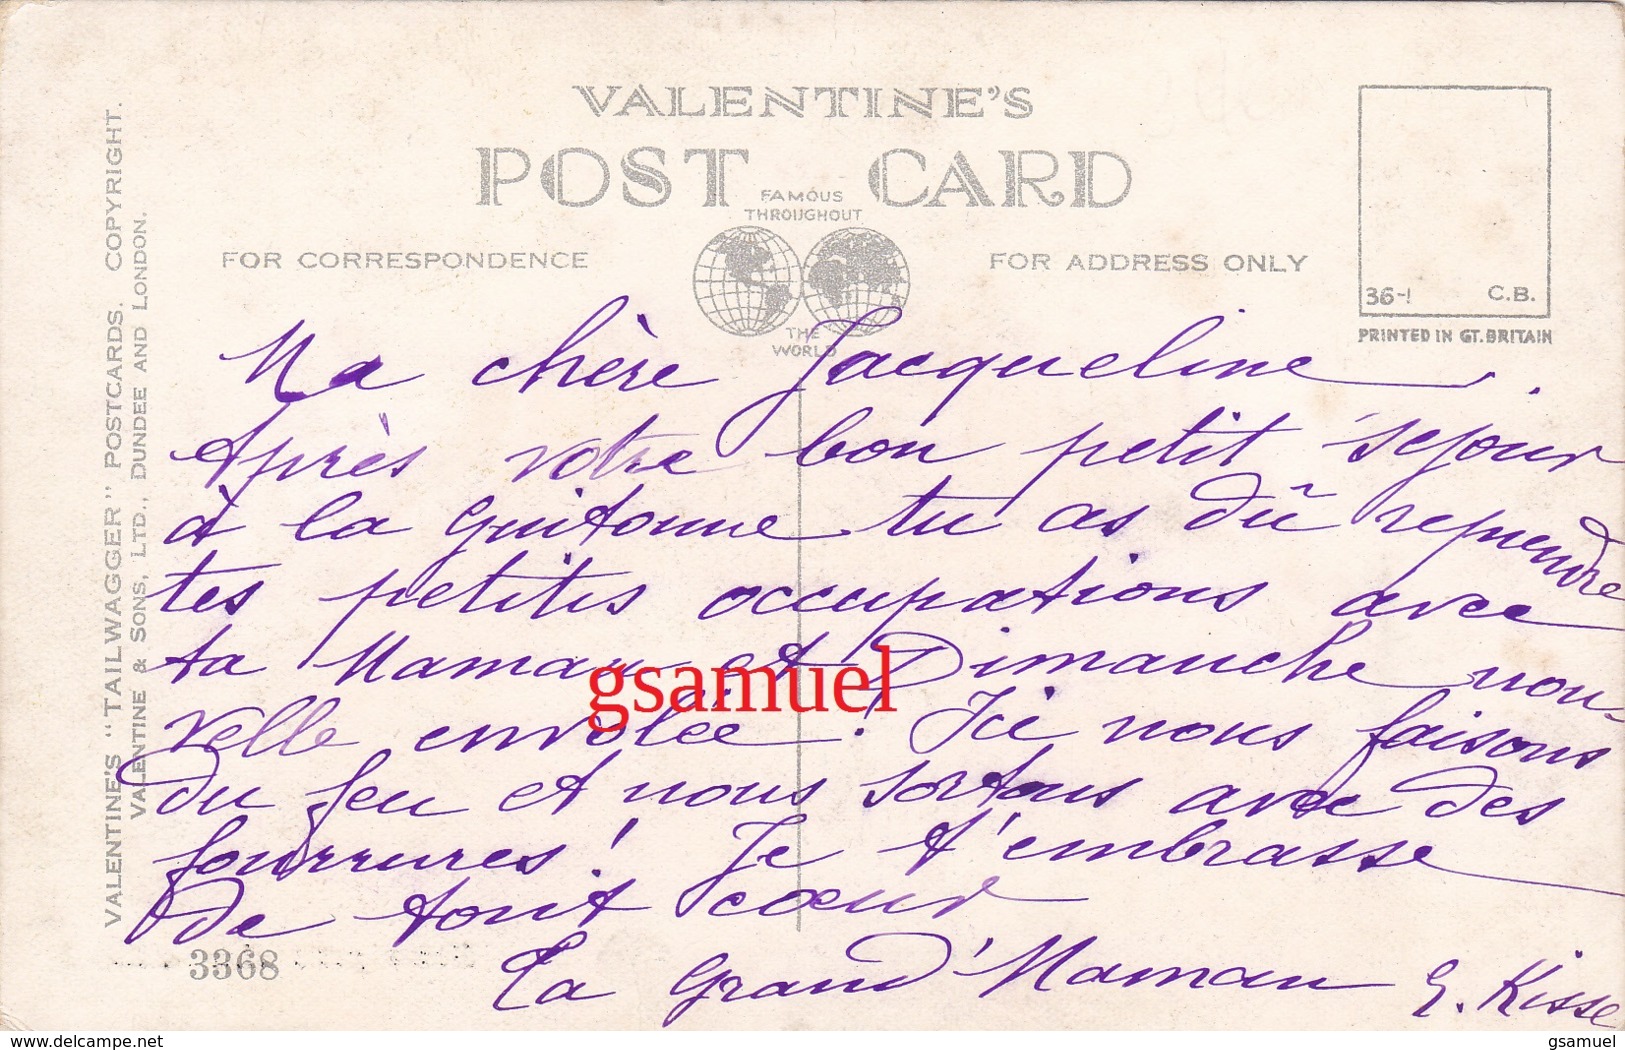 VALENTINE'S
POST CARD
FAMOUS
THROUGHOUT
THE
WORLD
FOR CORRESPONDENCE
FOR ADDRESS ONLY
36-1 C.B.
PRINTED IN GT. BRITAIN
VALENTINE'S "TAILWAGGER" POSTCARDS. COPYRIGHT.
VALENTINE & SONS, LTD., DUNDEE AND LONDON.
Ma chère Jacqueline.
Après votre bon petit séjour
à la Guitonne tu as dû reprendre
tes petites occupations avec
ta Maman et Dimanche nou-
velle envolée! Ici nous faisons
du feu et nous sortons avec des
fourrures! Je t'embrasse
de tout cœur
Ta Grand'Maman E. Kisse
3368
gsamuel
www.delcampe.net
gsamuel